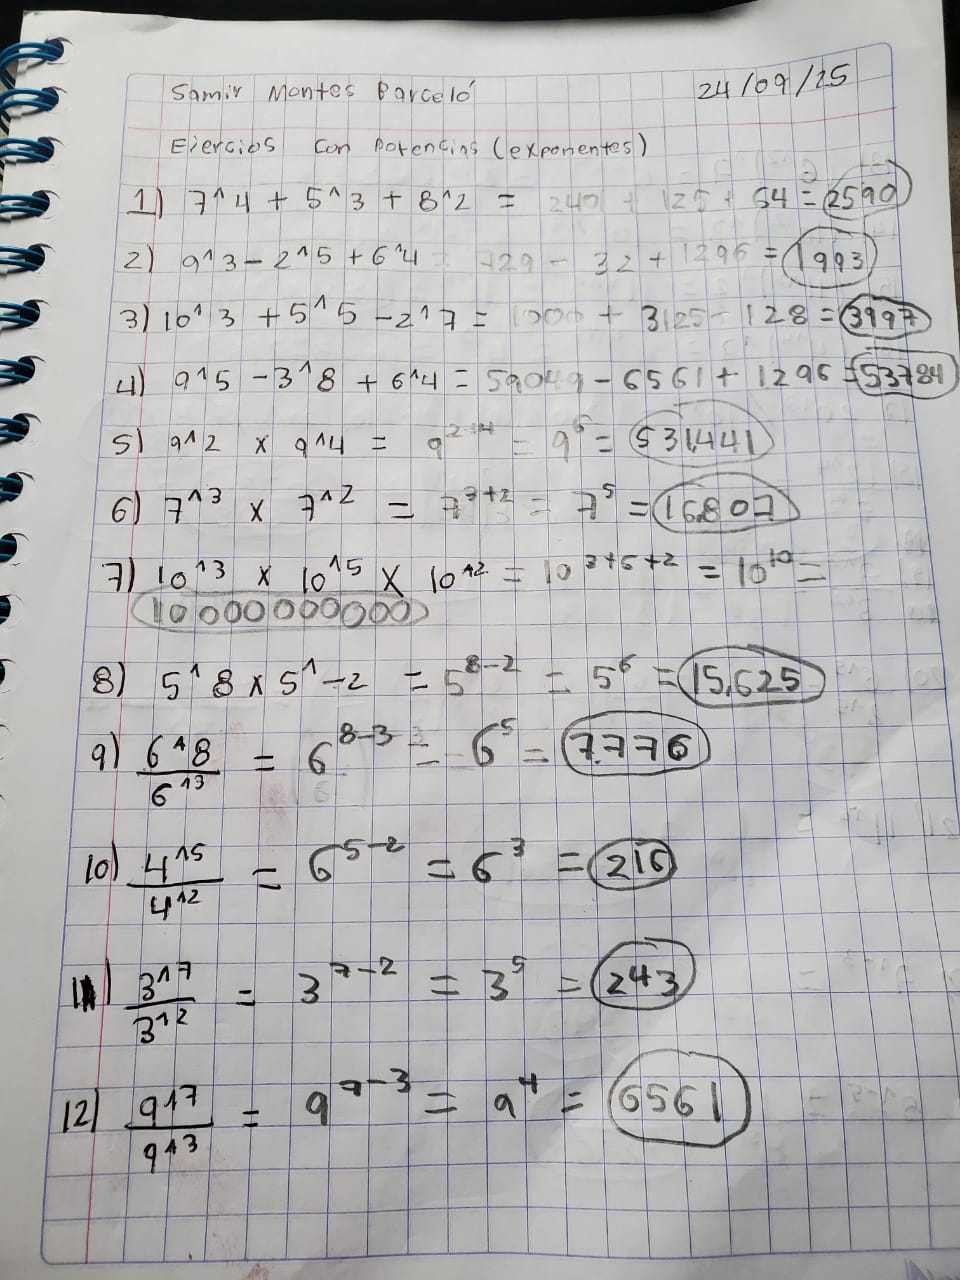 Samir Montes Parceló 24/09/25
Ejercios con potencias (exponentes)
1) 7^4 + 5^3 + 8^2 = 2401 + 125 + 64 = 2590
2) 9^3 - 2^5 + 6^4 = 729 - 32 + 1296 = 1993
3) 10^3 + 5^5 - 2^7 = 1000 + 3125 - 128 = 3997
4) 9^5 - 3^8 + 6^4 = 59049 - 6561 + 1296 = 53784
5) 9^2 x 9^4 = 9²⁺⁴ = 9⁶ = 531,441
6) 7^3 x 7^2 = 7³⁺² = 7⁵ = 16,807
7) 10^3 x 10^5 x 10^2 = 10³⁺⁵⁺² = 10¹⁰ =
10000000000
8) 5^8 x 5^-2 = 5⁸⁻² = 5⁶ = 15,625
9) 6^8/6^3 = 6⁸⁻³ = 6⁵ = 7,776
10) 4^5/4^2 = 6⁵⁻² = 6³ = 216
11) 3^7/3^2 = 3⁷⁻² = 3⁵ = 243
12) 9^7/9^3 = 9⁷⁻³ = 9⁴ = 6561